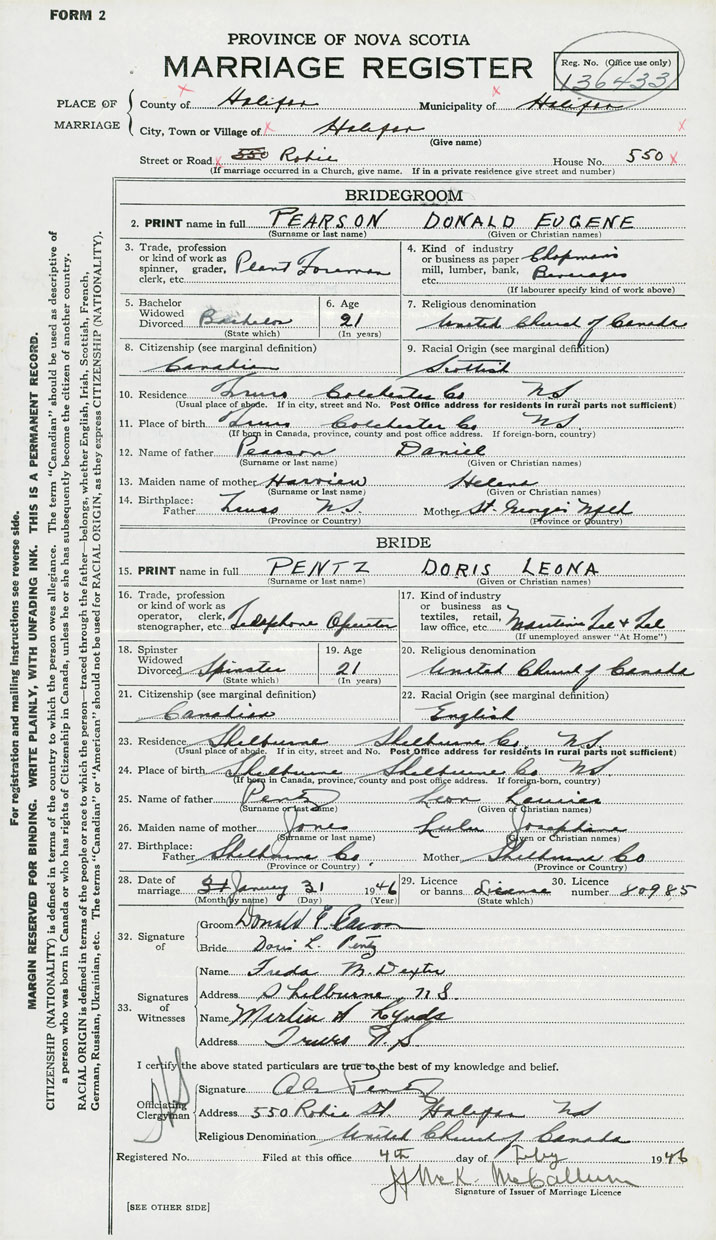 FORM 2
PROVINCE OF NOVA SCOTIA
MARRIAGE REGISTER
Reg. No. (Office use only)
136433
PLACE OF MARRIAGE
County of Halifax Municipality of Halifax
City, Town or Village of Halifax
(Give name)
Street or Road 550 Robie House No. 550
(If marriage occurred in a Church, give name. If in a private residence give street and number)
BRIDEGROOM
2. PRINT name in full PEARSON DONALD EUGENE
(Surname or last name) (Given or Christian names)
3. Trade, profession or kind of work as spinner, grader, clerk, etc. Plant Foreman
4. Kind of industry or business as paper mill, lumber, bank, etc. Chapman's Beverages
(If labourer specify kind of work above)
5. Bachelor Widowed Divorced Bachelor
(State which)
6. Age 21
(In years)
7. Religious denomination
United Church of Canada
8. Citizenship (see marginal definition)
Canadian
9. Racial Origin (see marginal definition)
Scottish
10. Residence Truro Colchester Co NS
(Usual place of abode. If in city, street and No. Post Office address for residents in rural parts not sufficient)
11. Place of birth Truro Colchester Co NS.
(If born in Canada, province, county and post office address. If foreign-born, country)
12. Name of father Pearson Daniel
(Surname or last name) (Given or Christian names)
13. Maiden name of mother Helena
(Surname or last name) (Given or Christian names)
14. Birthplace: Father Truro N.S. Mother St. Georges Nfld
(Province or Country) (Province or Country)
BRIDE
15. PRINT name in full PENTZ DORIS LEONA
(Surname or last name) (Given or Christian names)
16. Trade, profession or kind of work as operator, clerk, stenographer, etc. Telephone Operator
17. Kind of industry or business as textiles, retail, law office, etc. Maritime Tel & Tel
(If unemployed answer "At Home")
18. Spinster Widowed Divorced Spinster
(State which)
19. Age 21
(In years)
20. Religious denomination
United Church of Canada
21. Citizenship (see marginal definition)
Canadian
22. Racial Origin (see marginal definition)
English
23. Residence Shelburne Shelburne Co. N.S.
(Usual place of abode. If in city, street and No. Post Office address for residents in rural parts not sufficient)
24. Place of birth Shelburne Shelburne Co NS.
(If born in Canada, province, county and post office address. If foreign-born, country)
25. Name of father Pentz Leon
(Surname or last name) (Given or Christian names)
26. Maiden name of mother Jones Lulu Josephine
(Surname or last name) (Given or Christian names)
27. Birthplace: Father Shelburne Co. Mother Shelburne Co
(Province or Country) (Province or Country)
28. Date of marriage January 31 1946
(Month by name) (Day) (Year)
29. Licence or banns License
(State which)
30. Licence number 80985
32. Signature of
Groom Donald E. Pearson
Bride Doris L. Pentz
33. Signatures of Witnesses
Name Freda M. Dexter
Address Shelburne, N.S.
Name
Address Truro N.S
I certify the above stated particulars are true to the best of my knowledge and belief.
Officiating Clergyman
Signature Pentz
Address 550 Robie St. Halifax NS
Religious Denomination United Church of Canada
Registered No. Filed at this office 4th day of Feby 1946
J McK. McCallum
Signature of Issuer of Marriage Licence
[SEE OTHER SIDE]
For registration and mailing instructions see reverse side.
MARGIN RESERVED FOR BINDING. WRITE PLAINLY, WITH UNFADING INK. THIS IS A PERMANENT RECORD.
CITIZENSHIP (NATIONALITY) is defined in terms of the country to which the person owes allegiance. The term "Canadian" should be used as descriptive of
a person who was born in Canada or who has rights of Citizenship in Canada, unless he or she has subsequently become the citizen of another country.
RACIAL ORIGIN is defined in terms of the people or race to which the person—traced through the father—belongs, whether English, Irish, Scottish, French,
German, Russian, Ukrainian, etc. The terms "Canadian" or "American" should not be used for RACIAL ORIGIN, as they express CITIZENSHIP (NATIONALITY).